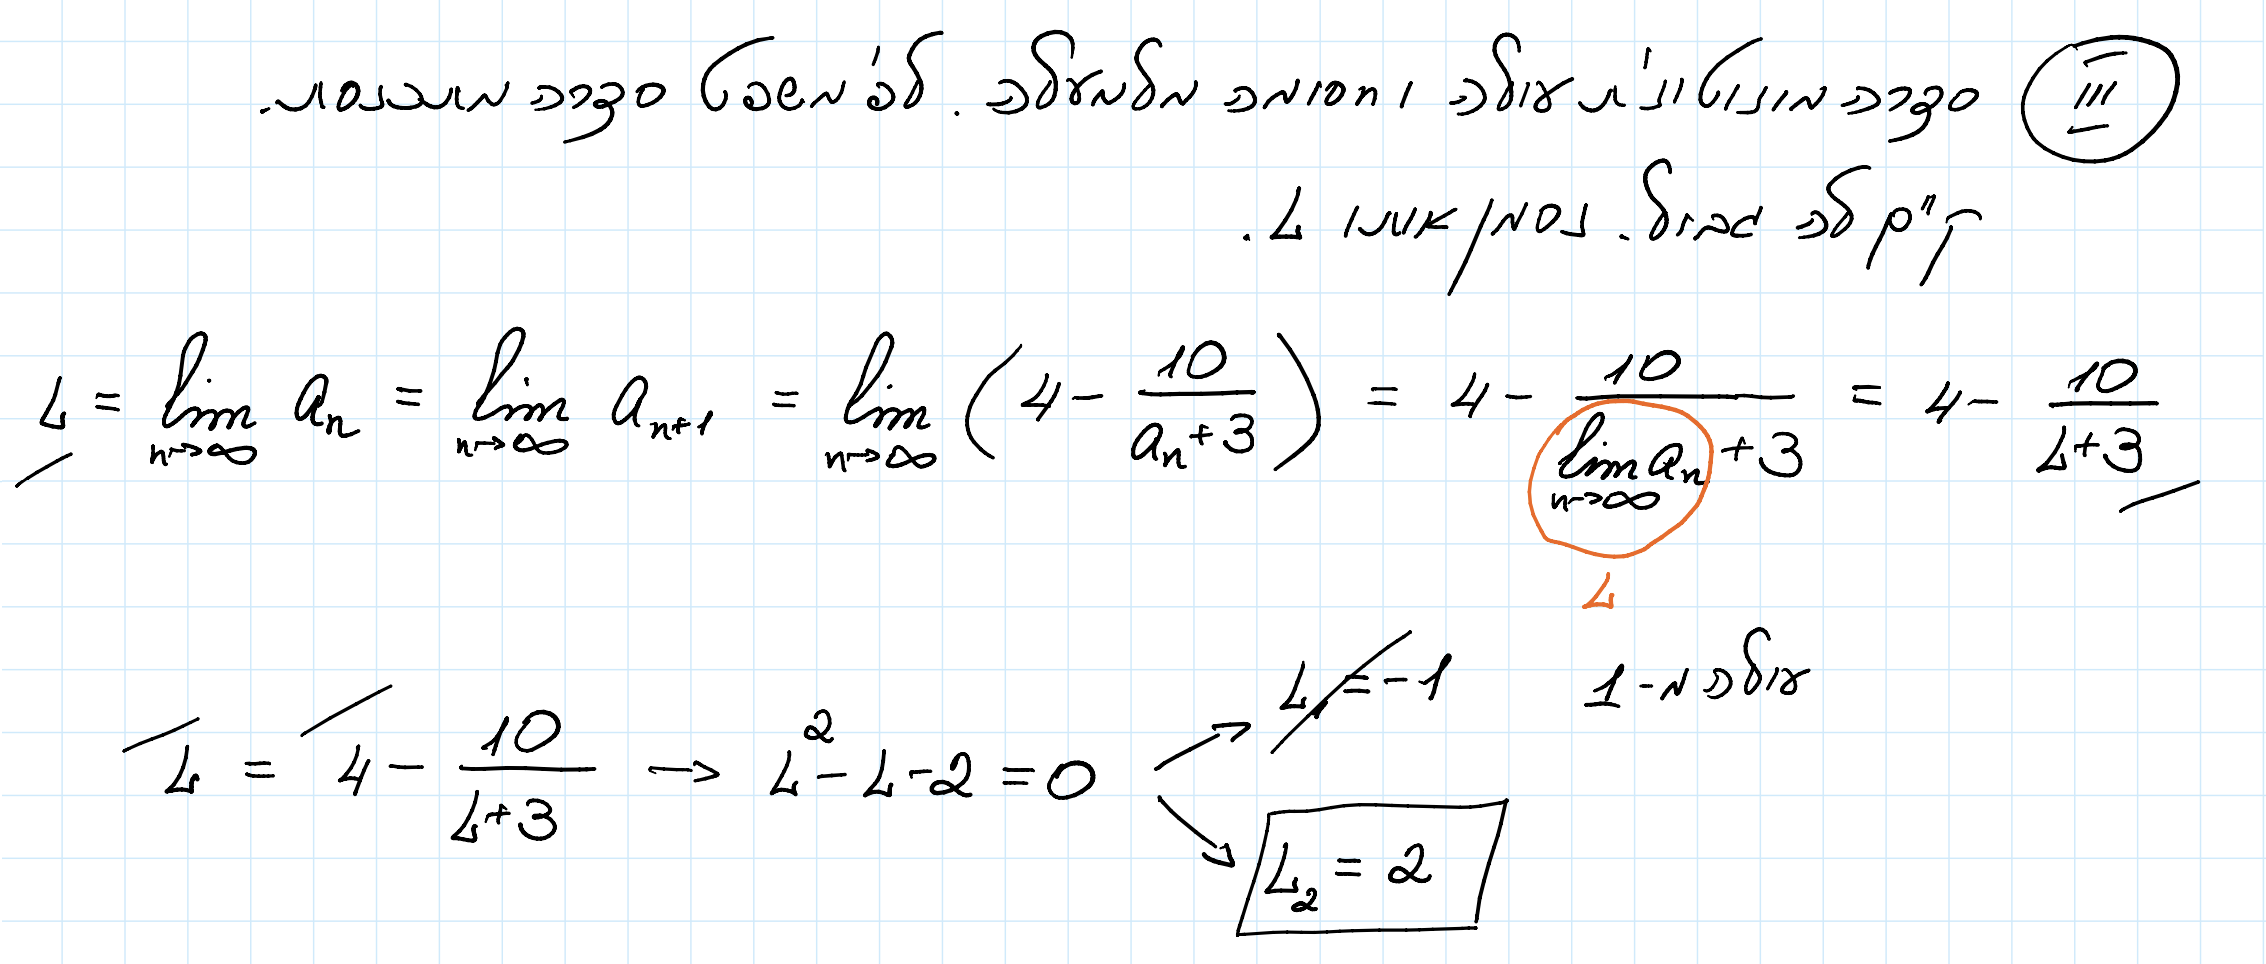 III סדרה מונוטונית עולה וחסומה מלמעלה. לפי משפט סדרה מתכנסת.
קיים לה גבול. נסמן אותו L.
L = lim_{n→∞} a_n = lim_{n→∞} a_{n+1} = lim_{n→∞} (4 - 10/(a_n + 3)) = 4 - 10/(lim_{n→∞} a_n + 3) = 4 - 10/(L+3)
L
L = 4 - 10/(L+3) → L² - L - 2 = 0
L₁ = -1 עולה מ-1
L₂ = 2